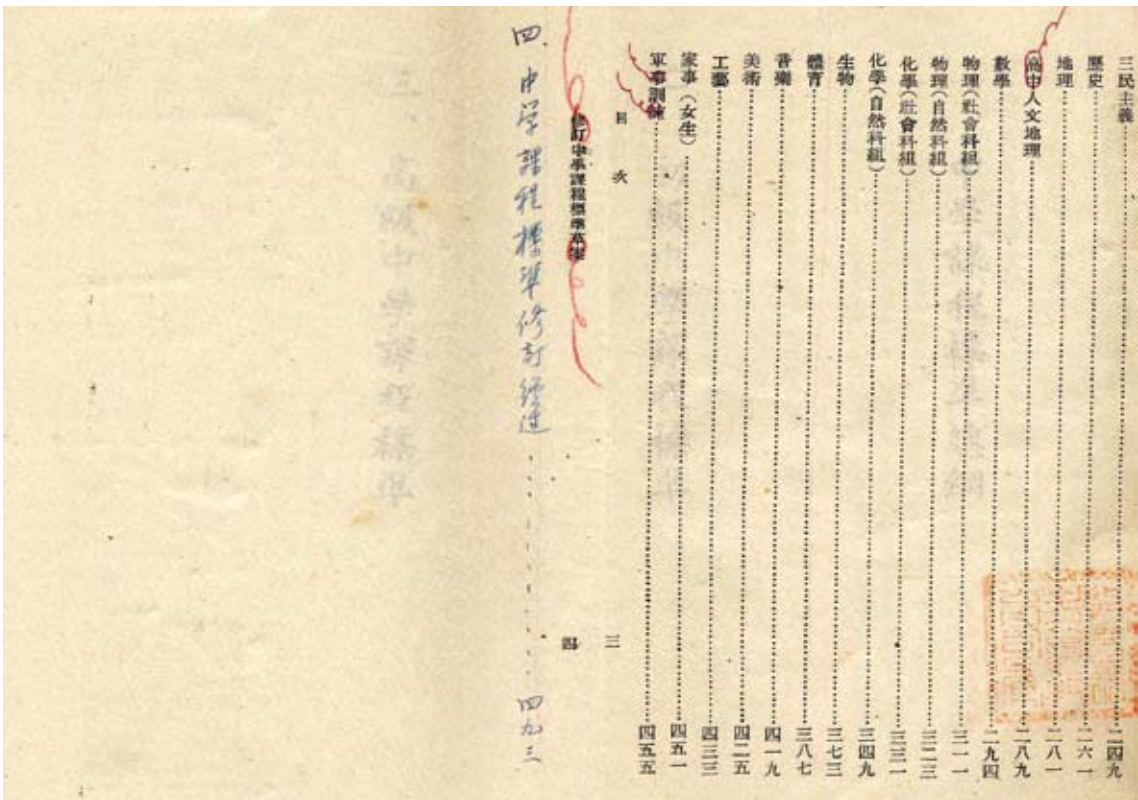 三民主義⋯⋯二四九
歷史⋯⋯二六一
地理⋯⋯二八一
高中人文地理⋯⋯二八九
數學⋯⋯二九四
物理(社會科組)⋯⋯三一一
物理(自然科組)⋯⋯三二三
化學(社會科組)⋯⋯三三一
化學(自然科組)⋯⋯三四九
生物⋯⋯三七三
體育⋯⋯三八七
音樂⋯⋯四一九
美術⋯⋯四二五
工藝⋯⋯四三三
家事(女生)⋯⋯四五一
軍事訓練⋯⋯四五五
目次
三
修訂中學課程標準草案
四
四、中学課程標準修訂經過⋯⋯四九三
三、高級中学課程標準